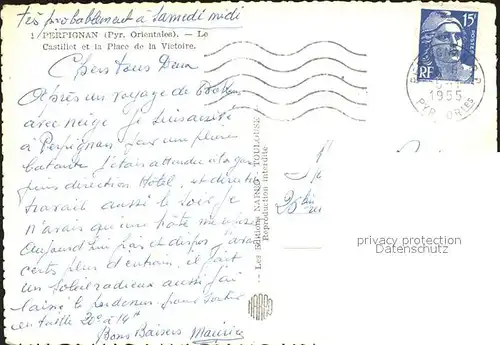 Très probablement à Samedi midi
1 PERPIGNAN (Pyr. Orientales). — Le
Castillet et la Place de la Victoire.
Chers tous Deux
Après un voyage de
avec neige je suis arrivé
à Perpignan par une pluie
battante J'étais attendu à la gare
puis direction Hôtel, et direct
travail aussi le soir je
n'avais qu'une hâte
Aujourd'hui et dispos
certes plus d'entrain, il fait
un soleil radieux aussi j'ai
laissé le pardessus pour sortir
en taille 20° à 14h
Bons Baisers Maurice
Les Editions NARBO - TOULOUSE
Reproduction interdite
15F
RF
1955
PYR. ORles
privacy protection
Datenschutz